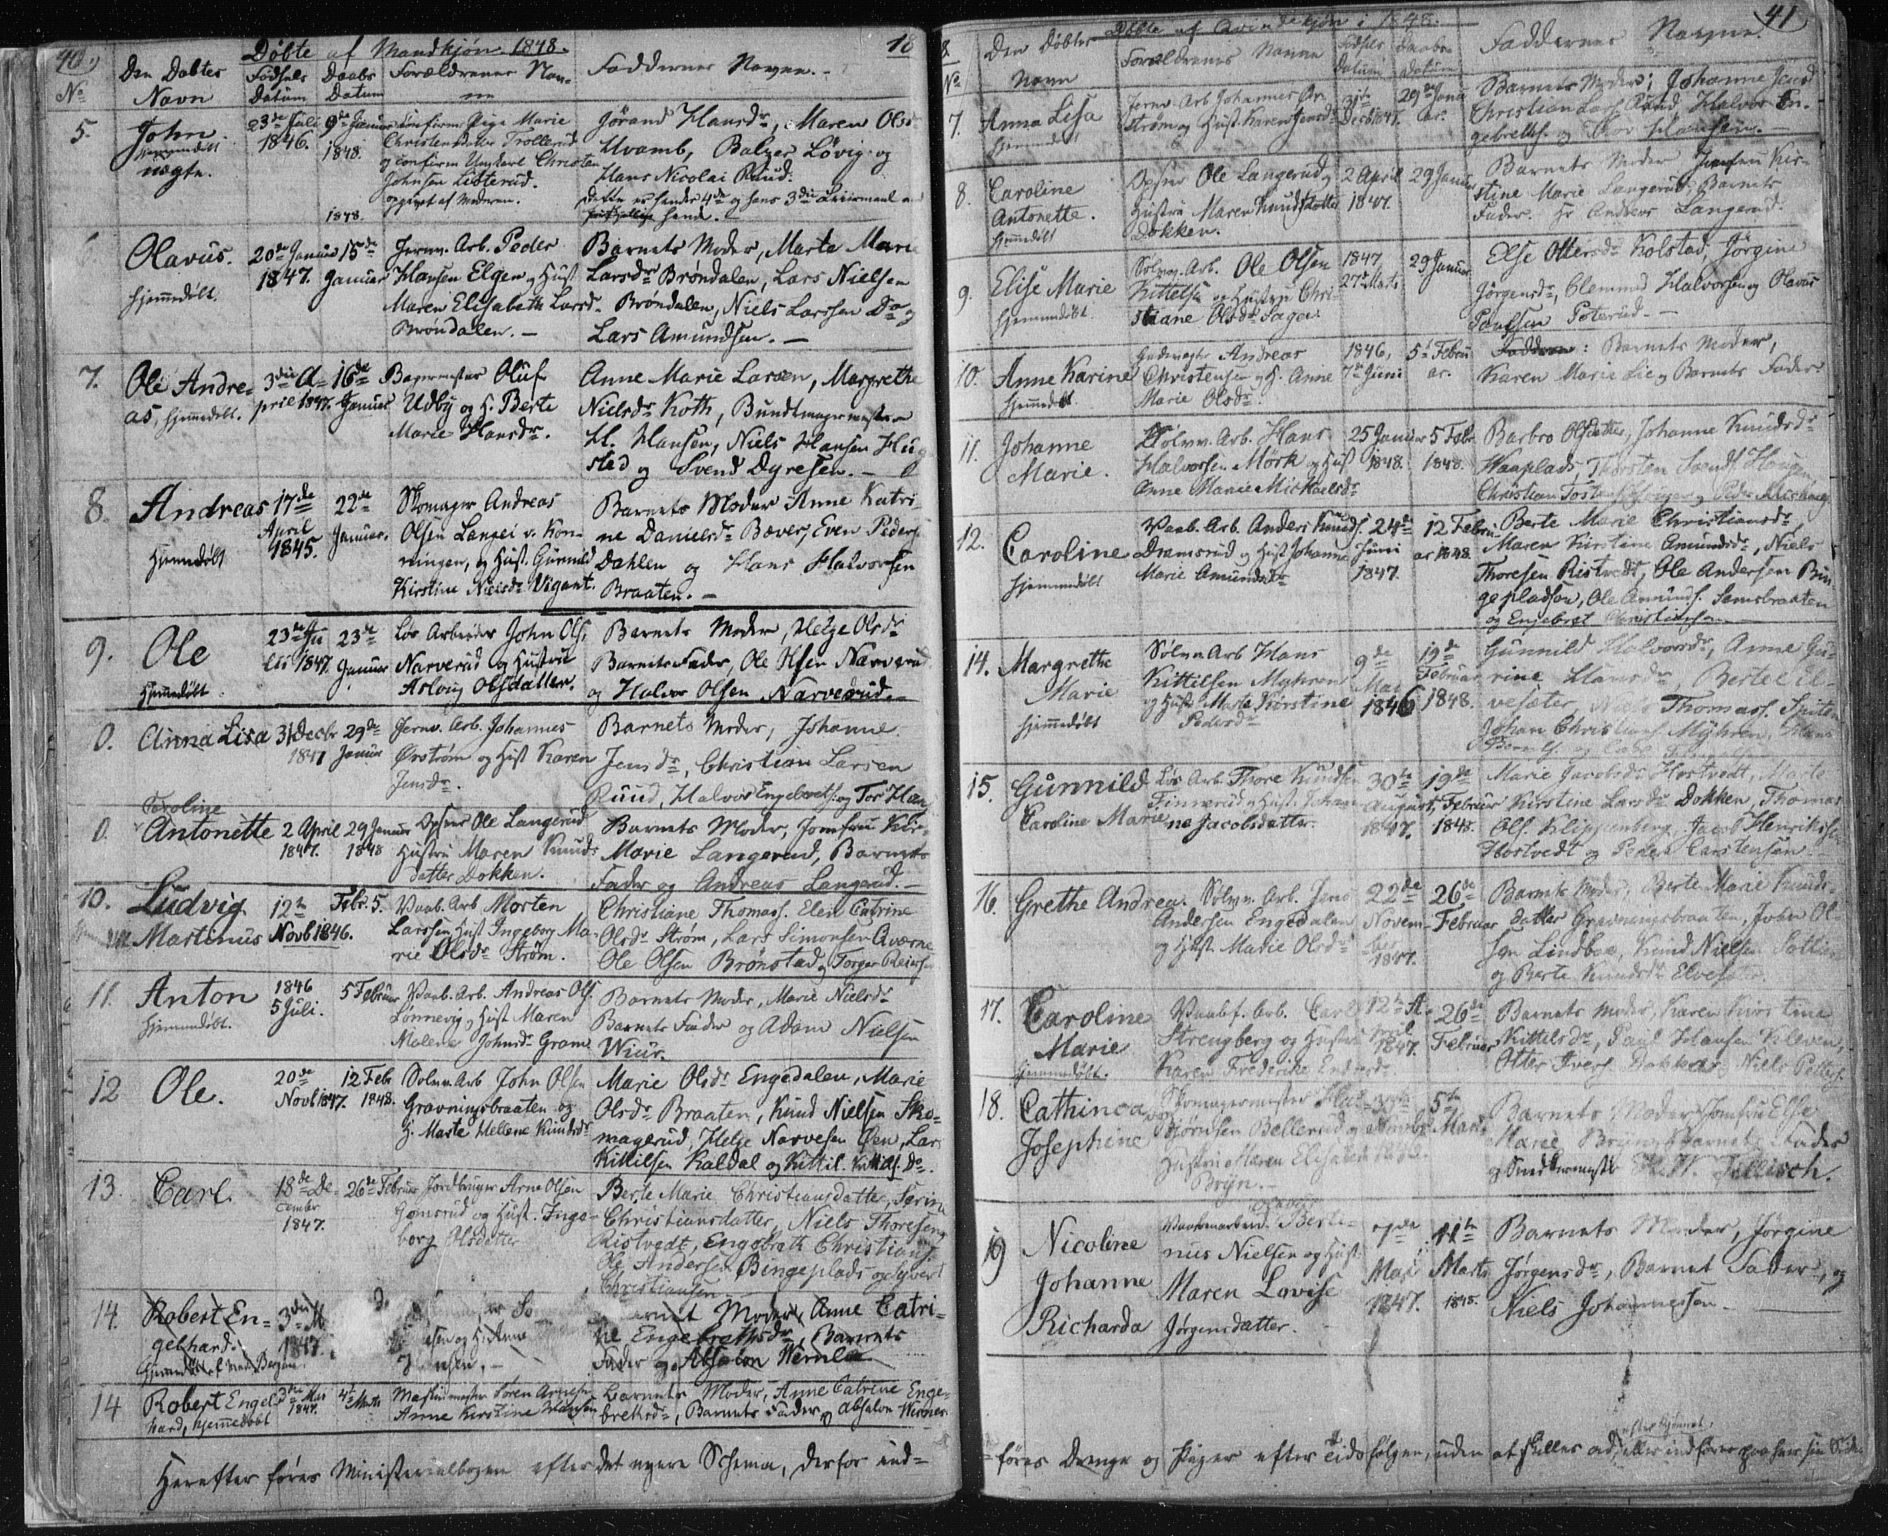 40.
Døbte af Mandkjøn 1848.
18
No
Den Døbtes
Navn
Fødsels
Datum
Daabs
Datum
Forældrenes Nav-
ne
Faddernes Navne.
5.
John
hjemmedøbt
uægte.
23de Juli
1846.
9de Januar
1848.
Pige Marie
Christensdatter Trollerud
og Ungkarl Christen
Johnsen Listerud.
opgivet af Moderen.
1848.
Jørand Hansdr, Maren Olsdr
Hvamb, Balzer Løvig og
Hans Nicolai Ruud.
Dette er hendes 4de og hans 3die Leiermaal
Olavus.
hjemmedøbt.
20de Januar
1847.
15de
Januar
Jernv. Arb. Peder
Hansen Elgen og Hust
Maren Elisabeth Larsdr
Brøndalen.
Barnets Moder, Marte Marie
Larsdr Brøndalen, Lars Nielsen
Brøndalen, Niels Larssen Do og
Lars Amundsen.
7.
Ole Andre-
as, hjemmedøbt.
3die A-
pril 1847.
16de
Januar
Bagermester Oluf
Udby og H. Berte
Marie Hansdr.
Anne Marie Larsen, Margrethe
Nielsdr Koth, Bundtmagermester
H. Hansen, Niels Hansen Hug
sted og Svend Dyresen.
8.
Andreas
hjemmedøbt
17de
April
1845.
22de
Januar.
Skomager Andreas
Olsen Langei v. Kon-
ningen, og Hust. Gunnild
Kirstine Nielsdr Vigant.
Barnets Moder Anne Katri-
ne Danielsdr Bæver, Even Peders
Dahlen og Hans Halvorsen
Braaten.
9.
Ole
Hjemmedøbt
23de Ju
lii 1847.
23de
Januar
Løs Arbeider John Ols.
Narverud og Hustru
Asloug Olsdatter.
Barnets Moder, Helge Olsdr
Barnets Fader, Ole Olsen Narverud
og Halvor Olsen Narverud.
0.
Anna Lisa
31 Decbr
1847
29de
Januar
Jernv. Arb. Johannes
Ørstrøm og Hust Karen
Jensdr.
Barnets Moder, Johanne
Jensdr, Christian Larsen
Ruud, Halvor Engebrets. og Tor Hans
0.
Caroline
Antonette
2 April
1847.
29 Januar
1848
Dysser Ole Langerud
Hustru Maren Knuds-
datter Dokken.
Barnets Moder, Jomfru Kir-
Marie Langerud, Barnets
Fader og Andreas Langerud.
10.
Ludvig
Martinus
12te
Novb 1846.
Febr 5.
Vaab. Arb Morten
Larssen, Hust Ingeborg Ma-
rie Olsdr Strøm.
Christiane Thomass. Elen Catrine
Olsdr Strøm, Lars Simonsen Aværne
Ole Olsen Brønstad og Torger Reiersn
11.
Anton
hjemmedøbt.
1846
5 Juli.
5 Februar
Vaab. Arb. Andreas Ols.
Lønnevig og Hust Maren
Malene Johnsdr Gram
Barnets Moder, Marie Nielsdr
Barnets Fader og Adam Nielsen
Wiur.
12
Ole.
20de
Novb 1847.
12 Febr
1848.
Sølvv. Arb John Olsen
Gravningsbraaten og
H. Marte Hellene Knudsdr
Marie Olsdr Engedalen, Marie
Olsdr Braaten, Knud Nielsen Sko-
magerud, Helge Narvesen Øen, Lars
Kittilsen Kaldal og Kittil Kittils. Do.
13.
Carl.
18de De
cember
1847.
26de Februar
Jordbruger Arne Olsen
Gomsrud og Hust. Inge-
borg Olsdatter
Berte Marie Christiansdatter, Sørine
Christiansdatter, Niels Thoresen
Ristvedt, Engebreth Christians.
Ole Andersen Bingeplads og Syvert
Christiansen
14.
Robert En-
gelhard
3die M
1847.
Barnet Moder, Anne Catri-
ne Engebrethsdr, Barnets
Fader og Absalon Werner
14
Robert Engel-
hard, hjemmedøbt
3die Mai
1847.
4de Marts
Maskinmester Søren Arnesen
Anne Kirstine Hansen
Barnets Moder, Anne Catrine Enge-
bretsdr, Barnets Fader og Absalon Werner
Herefter føres Ministerialbogen efter det nyere Schema, derfor ind-
41
Døbte af Qvindekjøn i 1848.
8
No
Den Døbtes
Navn
Forældrenes Navne
Fødsels
Datum
Daabs
Datum
Faddernes Navne
7.
Anna Lisa
hjemmedøbt
Jernv. Arb Johannes Ør-
strøm og Hust. Karen Jensdr
31te
Decb 1847.
29de Janu
ar.
Barnets Moder, Johanne Jensdr
Christian Lars. Ruud, Halvor En-
gebreths. og Thor Hansen.
8.
Caroline
Antonette.
hjemmedøbt
Dysser Ole Langerud og
Hustru Maren Knudsdatter
Dokken.
2 April
1847.
29 Januar
Barnets Moder Jomfru Kir-
stine Marie Langerud, Barnets
Fader. Hr Andreas Langerud.
9.
Elise Marie
hjemmedøbt.
Sølvv. Arb. Ole Olsen
Kittelsen og Hustru Chri-
stiane Olsdr Sagen
1847
27de Marts
29 Januar
Else Ottersdr Kolstad, Jørgine
Jørgensdr, Clemmed Halvorsen og Olavus
Paulsen Poterud.
10.
Anne Karine
hjemmedøbt
Guldsmager Andreas
Christensen og H. Anne
Marie Olsdr.
1846,
7de Juni
5te Febru
ar.
Faddere: Barnets Moder,
Karen Marie Lie og Barnets Fader
11.
Johanne
Marie.
Sølvv. Arb. Hans
Halvorsen Mørk og Hust
Anne Marie Michaelsdr
25 Januar
1848.
5 Febr.
1848.
Barbro Olsdatter, Johanne Knudsdr
Haaplads, Thorsten Svends. Haugen
12.
Caroline
hjemmedøbt
Vaab. Arb. Anders Knuds.
Dramsrud og Hust Johanne
Marie Amundsdr
24de
Juni
1847.
12 Febru
ar 1848.
Berte Marie Christiansdr,
Maren Kirstine Amundsdr, Niels
Thoresen Ristvedt, Ole Andersen Bin
gepladsen, Ole Amunds. Samsbraaten
og Engebret Christiansen
14.
Margrethe
Marie
hjemmedøbt
Sølvv. Arb Hans
Kittilsen Myhren
og Hust. Marte Kirstine
Pedersdr
9de
Mai
1846
19de
Februar
1848.
Gunnild Halvorsdr, Anne Gu-
rine Hansdr, Bertel El-
vesæter, Niels Thomass. Spiten
Johan Christians. Myhren, Hans
15.
Gunnild
Caroline Marie
Løs Arb. Thore Knudsen
Finnerud og Hust. Johan-
ne Jacobsdatter.
30te
August,
1847.
19de
Februar
1848.
Marie Jacobsdr Hostvedt, Marte
Kirstine Larsdr Dokken, Thomas
Ols. Klippenberg, Jacob Henriksen
Hostvedt og Peder Carstensen.
16.
Grethe Andrea.
Sølvv. Arb. Jens
Andersen Engedalen
og Hust. Marie Olsdr
22de
Novem-
ber
1847.
26de
Februar
Barnets Moder, Berte Marie Knuds-
datter Gravningsbraaten, John Ol-
sen Lindboe, Knud Nielsen
og Berte Knudsdr Elvesæter.
17.
Caroline
Marie
hjemmedøbt.
Vaabf. Arb. Carl
Strengberg og Hustru
Karen Frederike Endresdr
12te A-
pril
1847.
26de
Februar
Barnets Moder, Karen Kirstine
Kittelsdr, Paul Hansen Kleven,
Otter Ivers. Bakken, Niels Petters.
18.
Cathinca
Josephine
Skomagermester
Bjørnsen Bellerud og
Hustru Maren Elisabeth
Bryn.
5te
Marts
Barnets Moder, Jomfru Else
Marie Bruun, Barnets Fader
og Snedkermester H. W. Fellisch.
19
Nicoline
Johanne
Richarda
Vaabenarbeid. Berte-
nus Nielsen og Hust.
Maren Lovise
Jørgensdatter.
7de
Mai
1847.
11te
Marts
1848.
Barnets Moder, Jørgine
Jørgensdr, Barnet Fader, og
Niels Johannesen.
føres Drenge og Piger efter Tidsfølgen, uden at skilles ad, eller indføres paa hver sin Side.
efter Kjønnet,